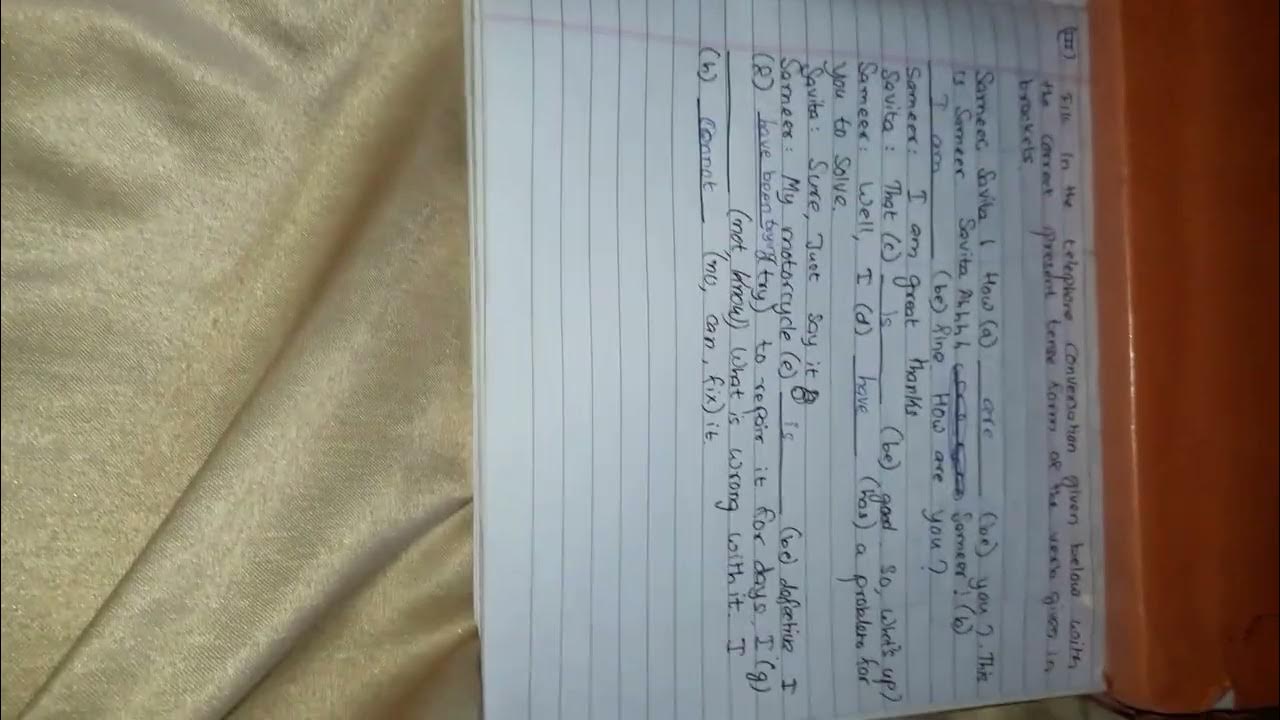 (III) Fill in the telephone conversation given below with
the correct present tense form of the verb given in
brackets.
Sameer Savita! How (a) ___ are ___ (be) you? This
is Sameer Savita Ahhh! Sameer! (b)
___ I am ___ (be) fine How are you?
Sameer: I am great thanks
Savita: That (c) ___ is ___ (be) good so, what's up?
Sameer: Well, I (d) ___ have ___ (has) a problem for
you to solve.
Savita: Sure, Just say it
Sameer: My motorcycle (e) ___ is ___ (be) defective. I
(f) have been trying (try) to repair it for days. I (g)
___ (not, know) what is wrong with it. I
(h) ___ cannot ___ (no, can, fix) it